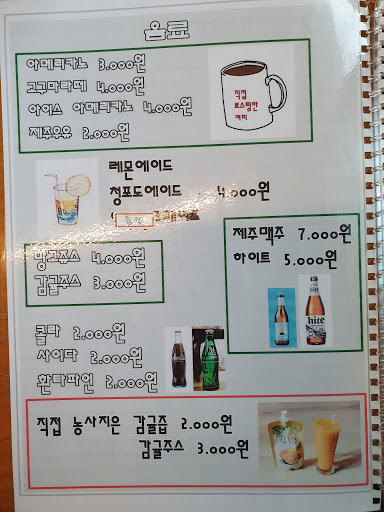 음료
아메리카노 3.000원
고구마라떼 4.000원
아이스 아메리카노 4.000원
제주우유 2.000원
직접
로스팅한
커피
레몬에이드
청포도에이드 4.000원
제주맥주 7.000원
하이트 5.000원
망고쥬스 4.000원
감귤주스 3.000원
hite
콜라 2.000원
사이다 2.000원
환타파인 2.000원
직접 농사지은 감귤즙 2.000원
감귤주스 3.000원